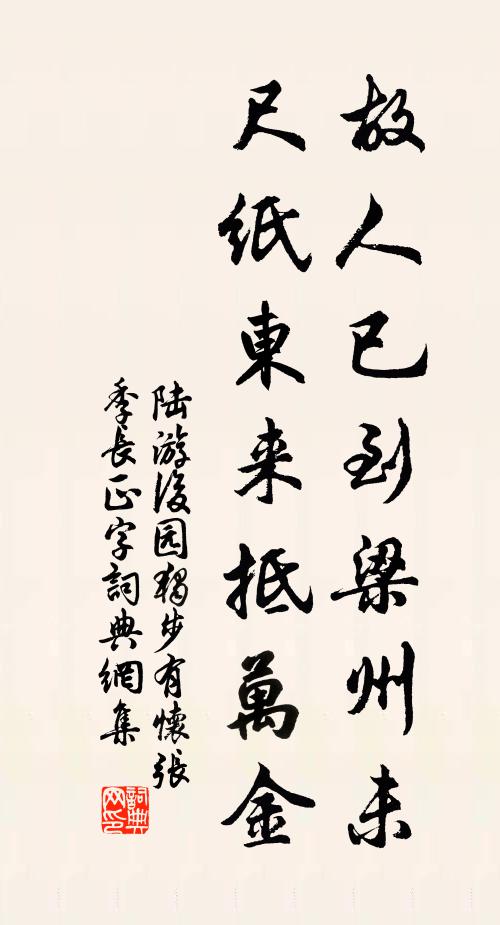 故人已到梁州未
尺紙東来抵萬金
陆游後园獨步有懷張
季長正字詞典網集
詞典
网印